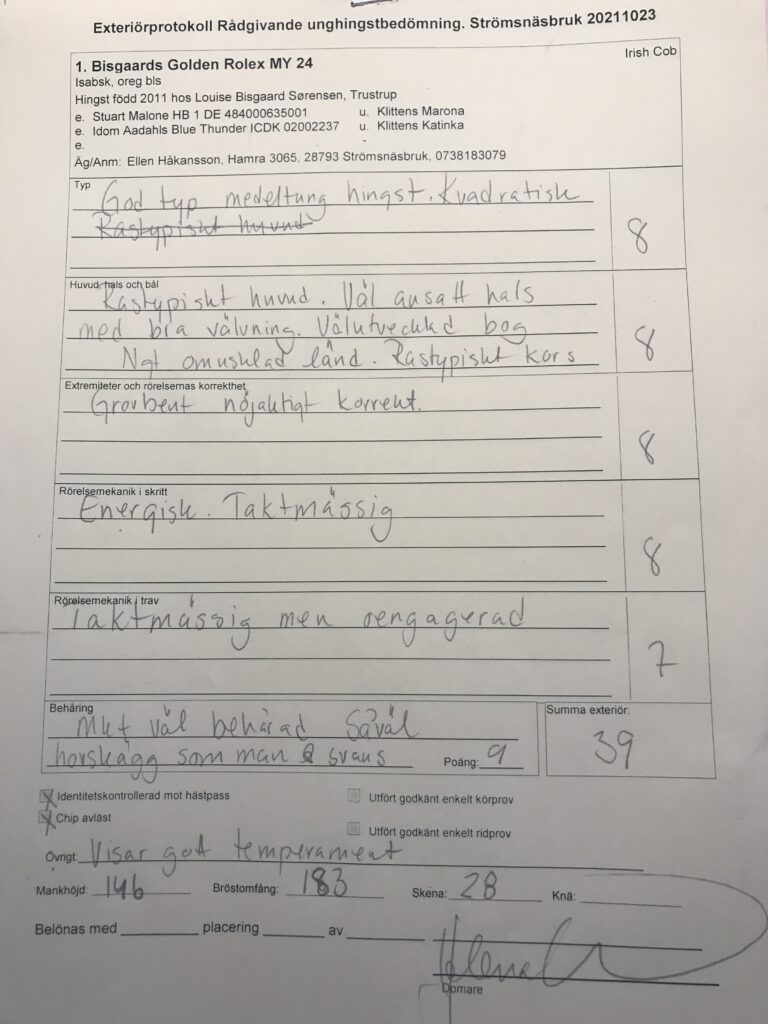 Exteriörprotokoll Rådgivande unghingstbedömning. Strömsnäsbruk 20211023
1. Bisgaards Golden Rolex MY 24
Irish Cob
Isabsk, oreg bls
Hingst född 2011 hos Louise Bisgaard Sørensen, Trustrup
e. Stuart Malone HB 1 DE 484000635001 u. Klittens Marona
e. Idom Aadahls Blue Thunder ICDK 02002237 u. Klittens Katinka
e. -
Äg/Anm: Ellen Håkansson, Hamra 3065, 28793 Strömsnäsbruk, 0738183079
Typ
God typ medeltung hingst. Kvadratisk
Rastypiskt huvud
8
Huvud, hals och bål
Rastypiskt huvud. Väl ansatt hals
med bra välvning. Välutvecklad bog
Ngt omusklad länd. Rastypiskt kors
8
Extremiteter och rörelsernas korrekthet
Grovbent nöjaktigt korrekt.
8
Rörelsemekanik i skritt
Energisk. Taktmässig
8
Rörelsemekanik i trav
Taktmässig men oengagerad
7
Behåring
Mkt väl behårad såväl
hovskägg som man & svans
Poäng: 9
Summa exteriör:
39
Identitetskontrollerad mot hästpass
Utfört godkänt enkelt körprov
Chip avläst
Utfört godkänt enkelt ridprov
Övrigt: Visar gott temperament
Mankhöjd: 146 Bröstomfång: 183 Skena: 28 Knä:
Belönas med placering av
Helena
Domare